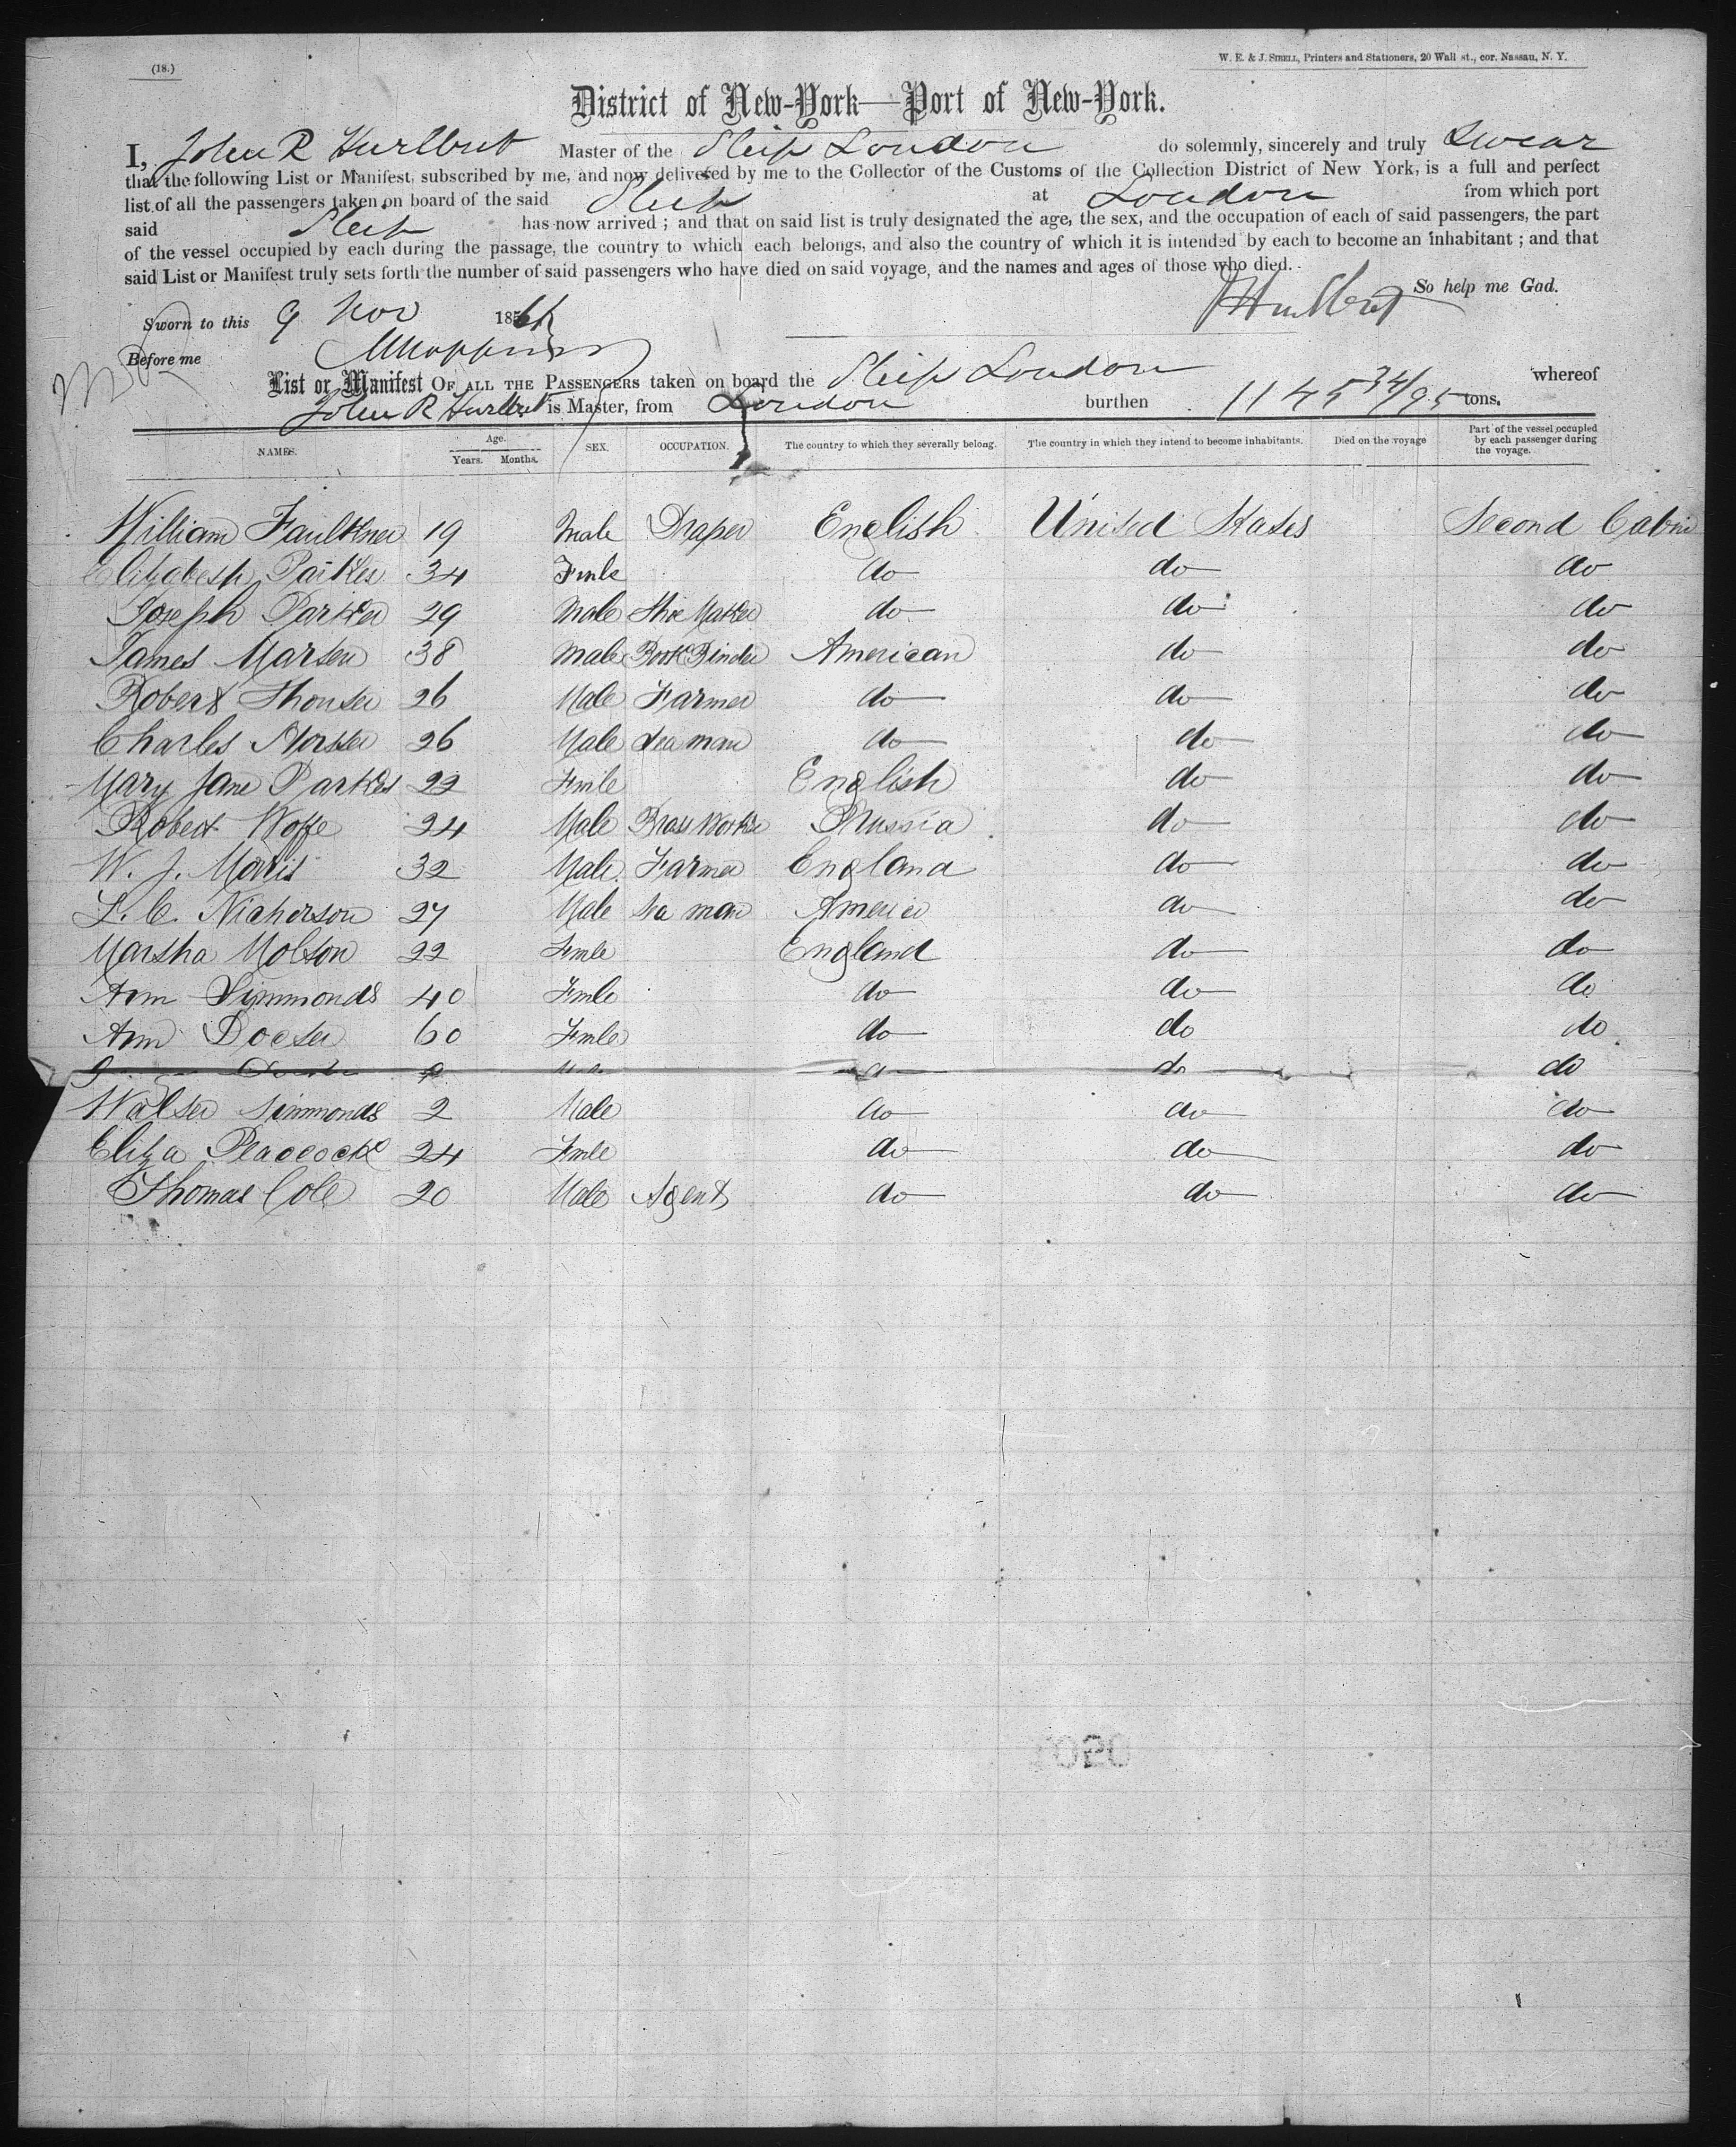 (18.)
W. E. & J. SIBELL, Printers and Stationers, 20 Wall st., cor. Nassau, N. Y.
District of New-York—Port of New-York.
I, John R Hurlbut Master of the Ship London do solemnly, sincerely and truly Swear
that the following List or Manifest, subscribed by me, and now delivered by me to the Collector of the Customs of the Collection District of New York, is a full and perfect
list of all the passengers taken on board of the said Ship at London from which port
said Ship has now arrived ; and that on said list is truly designated the age, the sex, and the occupation of each of said passengers, the part
of the vessel occupied by each during the passage, the country to which each belongs, and also the country of which it is intended by each to become an inhabitant ; and that
said List or Manifest truly sets forth the number of said passengers who have died on said voyage, and the names and ages of those who died.
So help me God.
JHurlbut
Sworn to this 9 Nov 18
Before me
List or Manifest OF ALL THE PASSENGERS taken on board the Ship London whereof
John R Hurlbut is Master, from London burthen 1145 34/95 tons.
NAMES. Age. Years. Months. SEX. OCCUPATION. The country to which they severally belong. The country in which they intend to become inhabitants. Died on the voyage Part of the vessel occupied by each passenger during the voyage.
William Faulkner 19 Male Draper English United States Second Cabin
Elizabeth Parker 34 Fmle do do do
Joseph Parker 29 Male Shoe Maker do do do
James Marsen 38 Male Book Binder American do do
Robert 26 Male Farmer do do do
Charles 26 Male Sea man do do do
Mary Jane Parker 22 Fmle English do do
Robert Wolfe 24 Male Brass Worker Prussia do do
W. J. Morris 32 Male Farmer England do do
L. C. Nickerson 27 Male Sea man America do do
Marsha Molson 22 Fmle England do do
Ann Simmonds 40 Fmle do do do
Ann Docter 60 Fmle do do do
do do
Walter Simmonds 2 Male do do do
Eliza Peacocke 24 Fmle do do do
Thomas Cole 20 Male Agent do do do